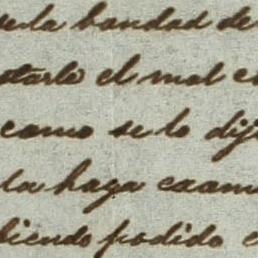 la bondad de
tarle el mal e
como se lo dij
la haga exam
iendo podido e